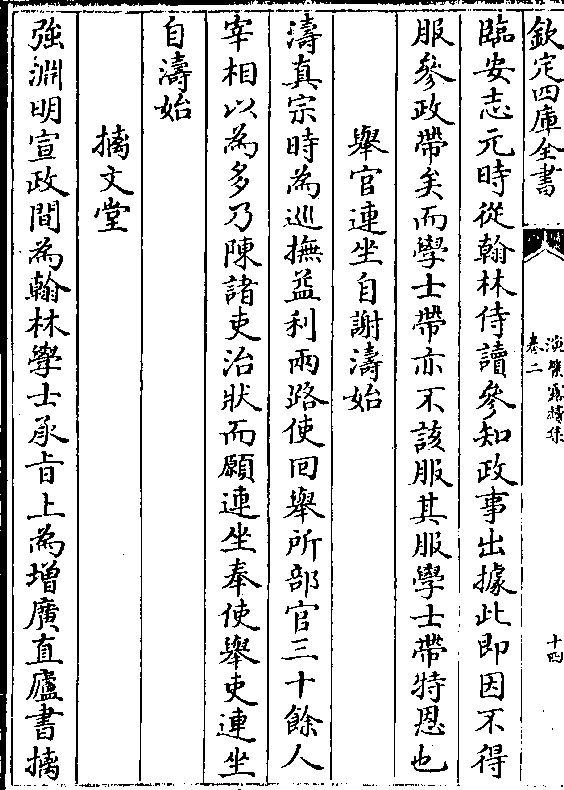 欽定四庫全書
演繁露續集
卷二
十四
臨安志元時從翰林侍讀參知政事出據此即因不得
服參政帶矣而學士帶亦不該服其服學士帶特恩也
舉官連坐自謝濤始
濤真宗時為巡撫益利兩路使回舉所部官三十餘人
宰相以為多乃陳諸吏治狀而願連坐奉使舉吏連坐
自濤始
摛文堂
強淵明宣政間為翰林學士承㫖上為增廣直廬書摛